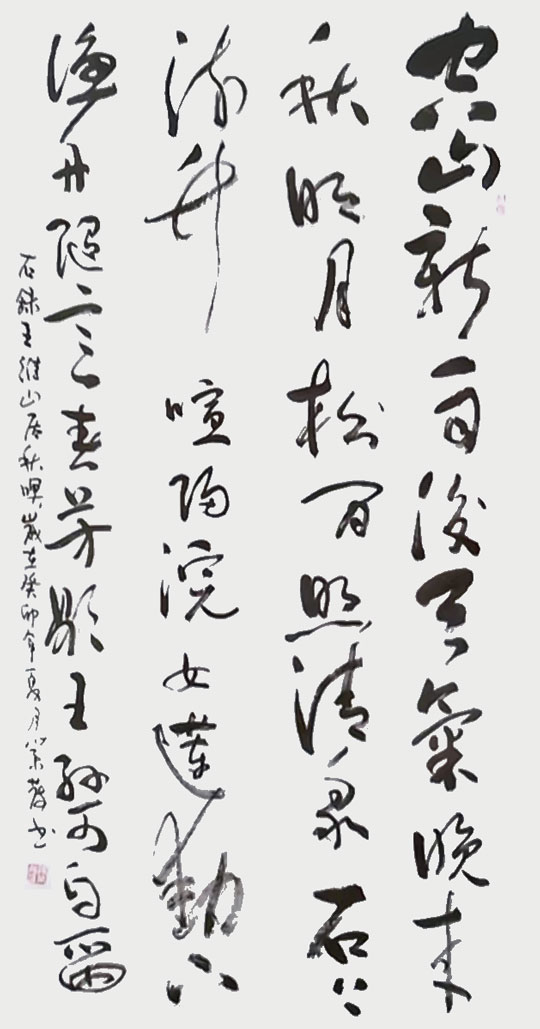 空山新雨後天氣晚來
秋明月松間照清泉石上
流竹喧歸浣女蓮動下
漁舟隨意春芳歇王孫可自留
右錄王維山居秋暝歲在癸卯年夏月書